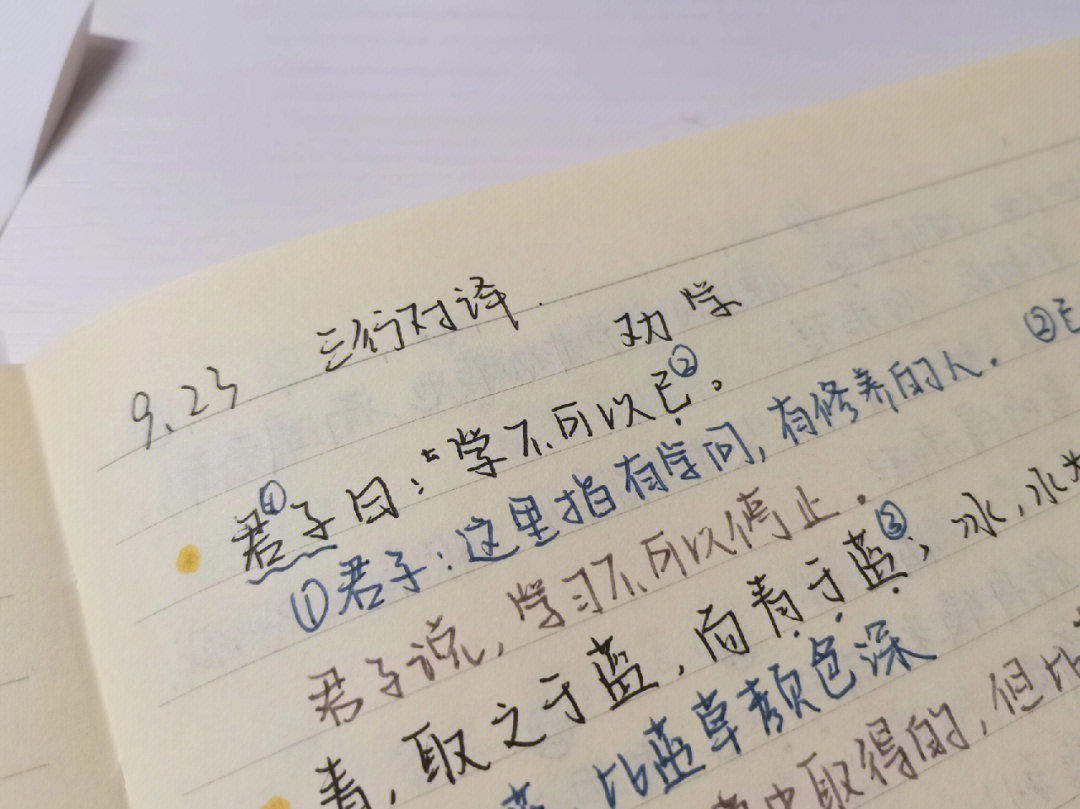 9.23 三行对译. 劝学
君子①曰：“学不可以已②。
①君子：这里指有学问，有修养的人. ②已
君子说，学习不可以停止.
青，取之于蓝，而青于蓝③；冰，水为
蓝，比蓝草颜色深
草中取得的，但比